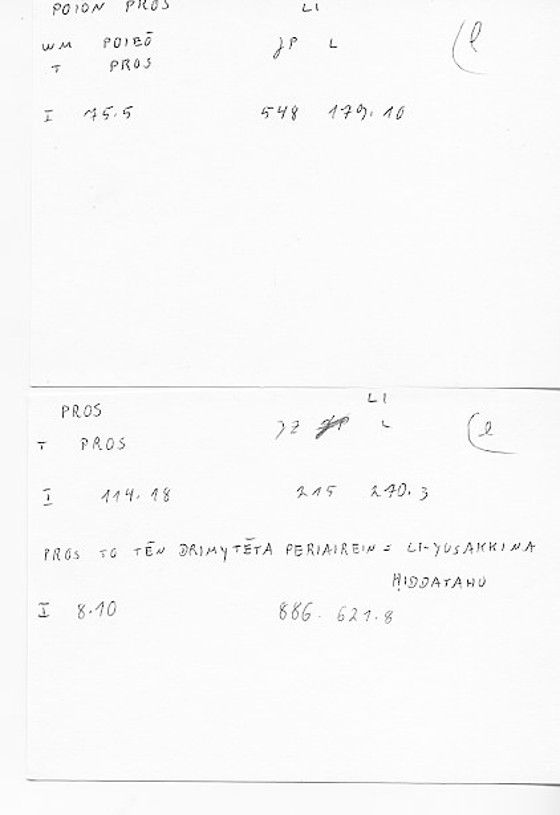 POION PROS LI
WM POIEŌ JP L (l
T PROS
I 75.5 548 179.10
LI
PROS
JZ L (l
T PROS
I 114.18 215 270.3
PROS TO TĒN DRIMYTĒTA PERIAIREIN = LI-YUSAKKINA
ḤIDDATAHU
I 8.10 886. 621.8